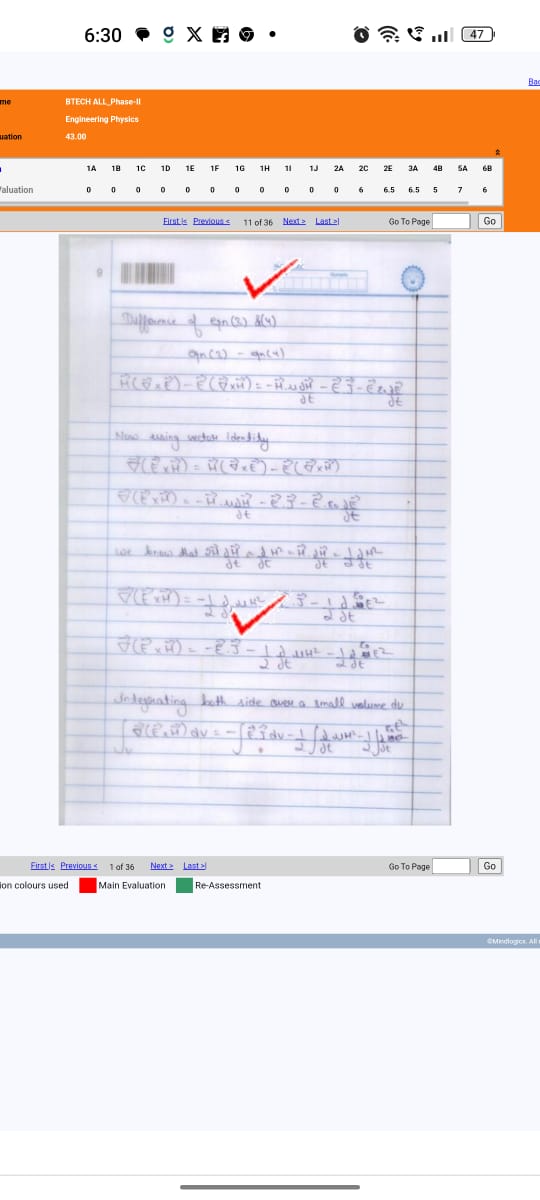 6:30
47
Bac
me
BTECH ALL_Phase-II
Engineering Physics
uation
43.00
1A 1B 1C 1D 1E 1F 1G 1H 1I 1J 2A 2C 2E 3A 4B 5A 6B
Valuation 0 0 0 0 0 0 0 0 0 0 0 6 6.5 6.5 5 7 6
First |< Previous < 11 of 36 Next > Last >| Go To Page Go
9
Difference of eqn(3) &(4)
eqn(3) - eqn(4)
H⃗(∇⃗×E⃗)-E⃗(∇⃗×H⃗) = -H⃗.μ∂H⃗/∂t - E⃗.J⃗ - E⃗ε₀∂E⃗/∂t
Now using vector identity
∇⃗(E⃗×H⃗) = H⃗(∇⃗×E⃗)-E⃗(∇⃗×H⃗)
∇⃗(E⃗×H⃗) = -H⃗.μ∂H⃗/∂t - E⃗.J⃗ - E⃗.ε₀ ∂E⃗/∂t
we know that
∇⃗(E⃗×H⃗) = -1/2 ∂/∂t μH² J⃗ - 1/2 ∂/∂t ε₀E²
∇⃗(E⃗×H⃗) = -E⃗.J⃗ - 1/2 ∂/∂t μH² - 1/2 ∂/∂t ε₀E²
Integrating both side over a small volume dv
∫∇⃗(E⃗×H⃗) dv = -∫E⃗.J⃗ dv - 1/2 ∫∂/∂t μH² - 1/2 ∫∂/∂t
First |< Previous < 1 of 36 Next > Last >| Go To Page Go
ion colours used Main Evaluation Re-Assessment
©Mindlogicx. All